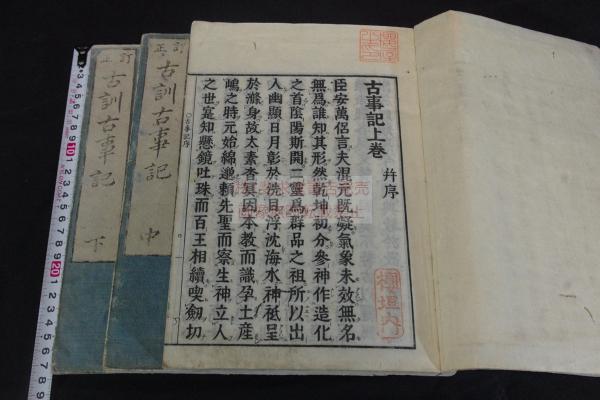 古事記上卷
幷序
臣安萬侶言夫混元既凝氣象未效無名
無爲誰知其形然乾坤初分參神作造化
之首陰陽斯開二靈爲群品之祖所以出
入幽顯日月彰於洗目浮沈海水神祇呈
於滌身故太素杳冥因本教而識孕土産
嶋之時元始綿邈頼先聖而察生神立人
之世寔知懸鏡吐珠而百王相續喫劒切
○古事記序
訂正
古訓古事記
中
訂正
古訓古事記
下